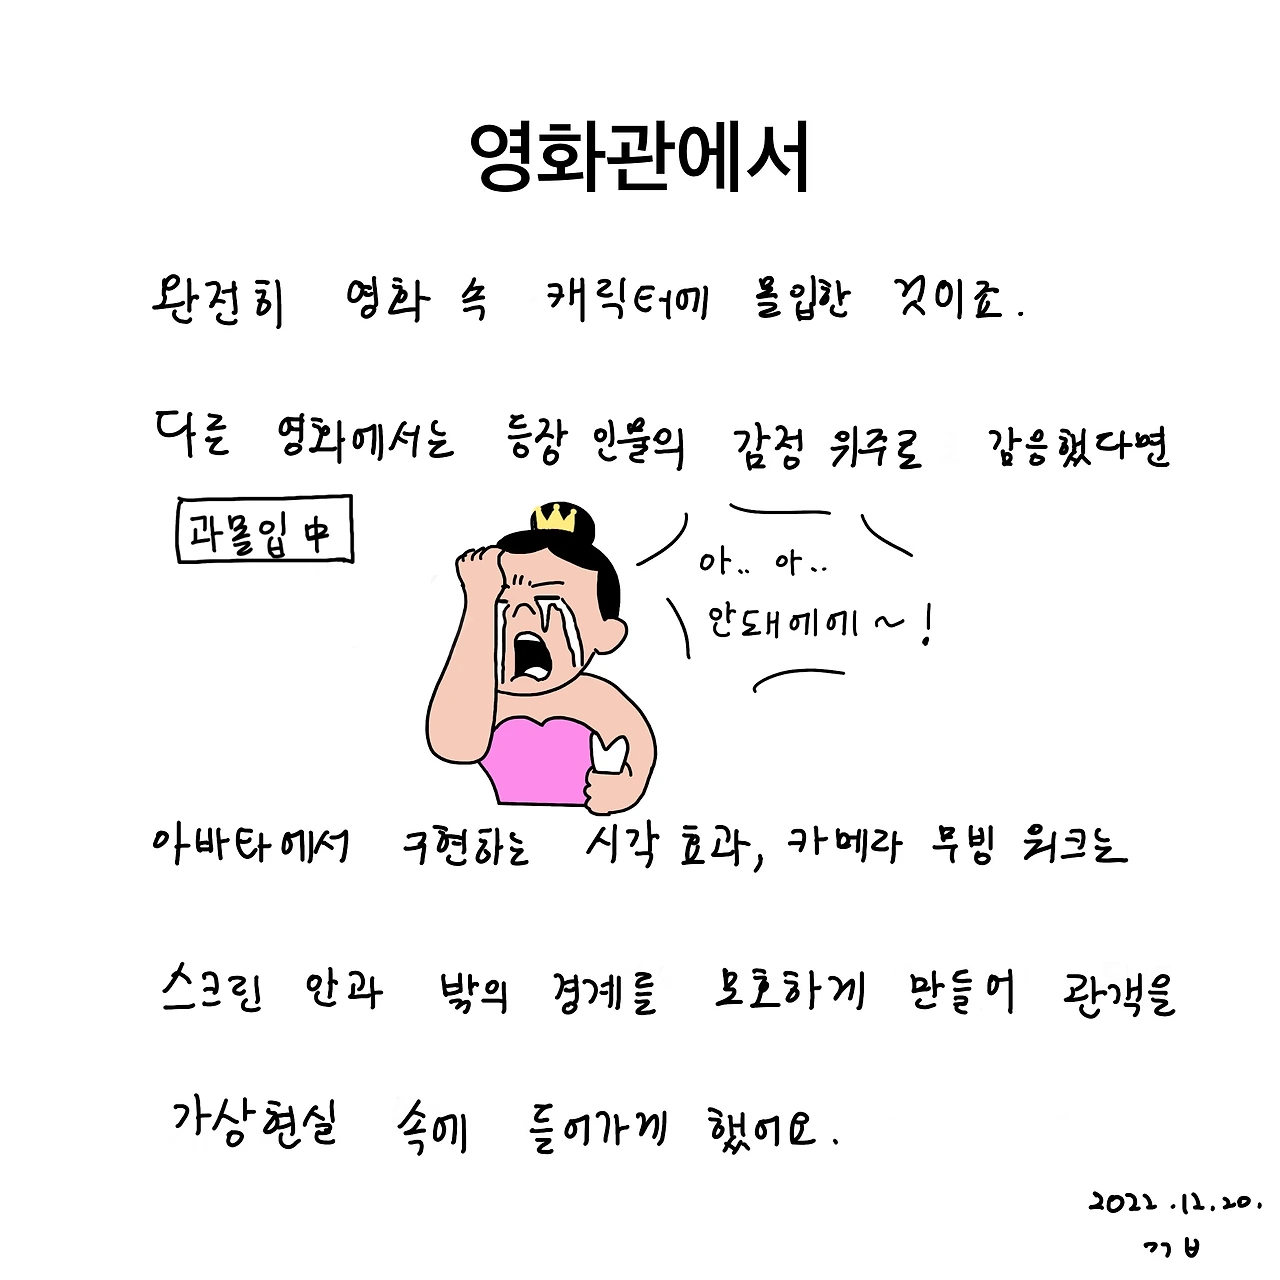 영화관에서
완전히 영화 속 캐릭터에 몰입한 것이죠.
다른 영화에서는 등장 인물의 감정 위주로 감응했다면
과몰입 中
아.. 아..
안돼에에~!
아바타에서 구현하는 시각 효과, 카메라 무빙 워크는
스크린 안과 밖의 경계를 모호하게 만들어 관객을
가상현실 속에 들어가게 했어요.
2022.12.20.
ㄲㅂ